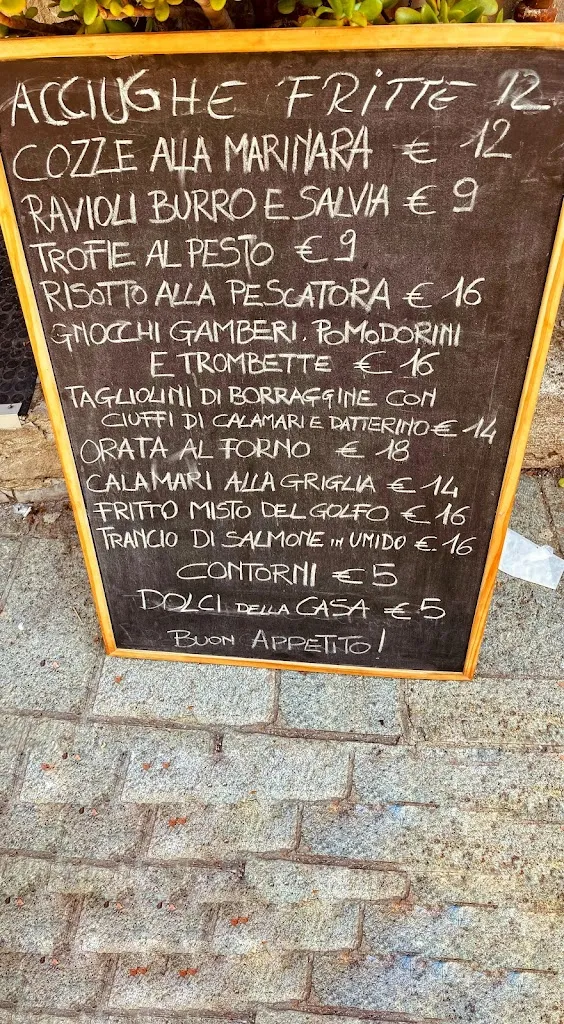 ACCIUGHE FRITTE 12
COZZE ALLA MARINARA € 12
RAVIOLI BURRO E SALVIA € 9
TROFIE AL PESTO € 9
RISOTTO ALLA PESCATORA € 16
GNOCCHI GAMBERI, POMODORINI
E TROMBETTE € 16
TAGLIOLINI DI BORRAGGINE CON
CIUFFI DI CALAMARI E DATTERINO € 14
ORATA AL FORNO € 18
CALAMARI ALLA GRIGLIA € 14
FRITTO MISTO DEL GOLFO € 16
TRANCIO DI SALMONE in UMIDO €.16
CONTORNI € 5
DOLCI DELLA CASA € 5
BUON APPETITO!